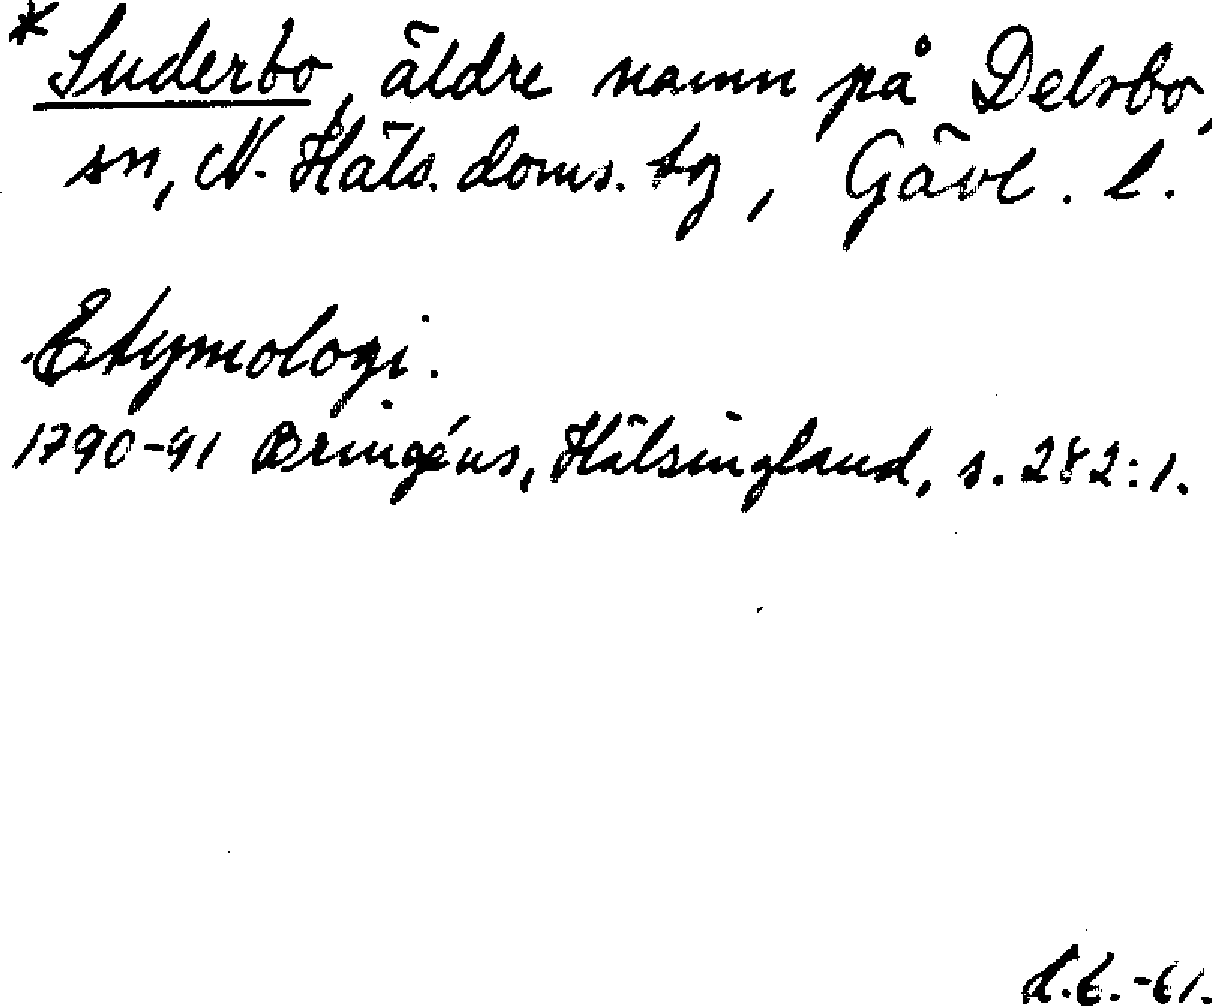 * Suderbo, äldre namn på Delsbo,
sn, N. Häls. doms. tg, Gävl. l.
Etymologi.
1790-91 Bringéus, Hälsingland, s. 282:1.